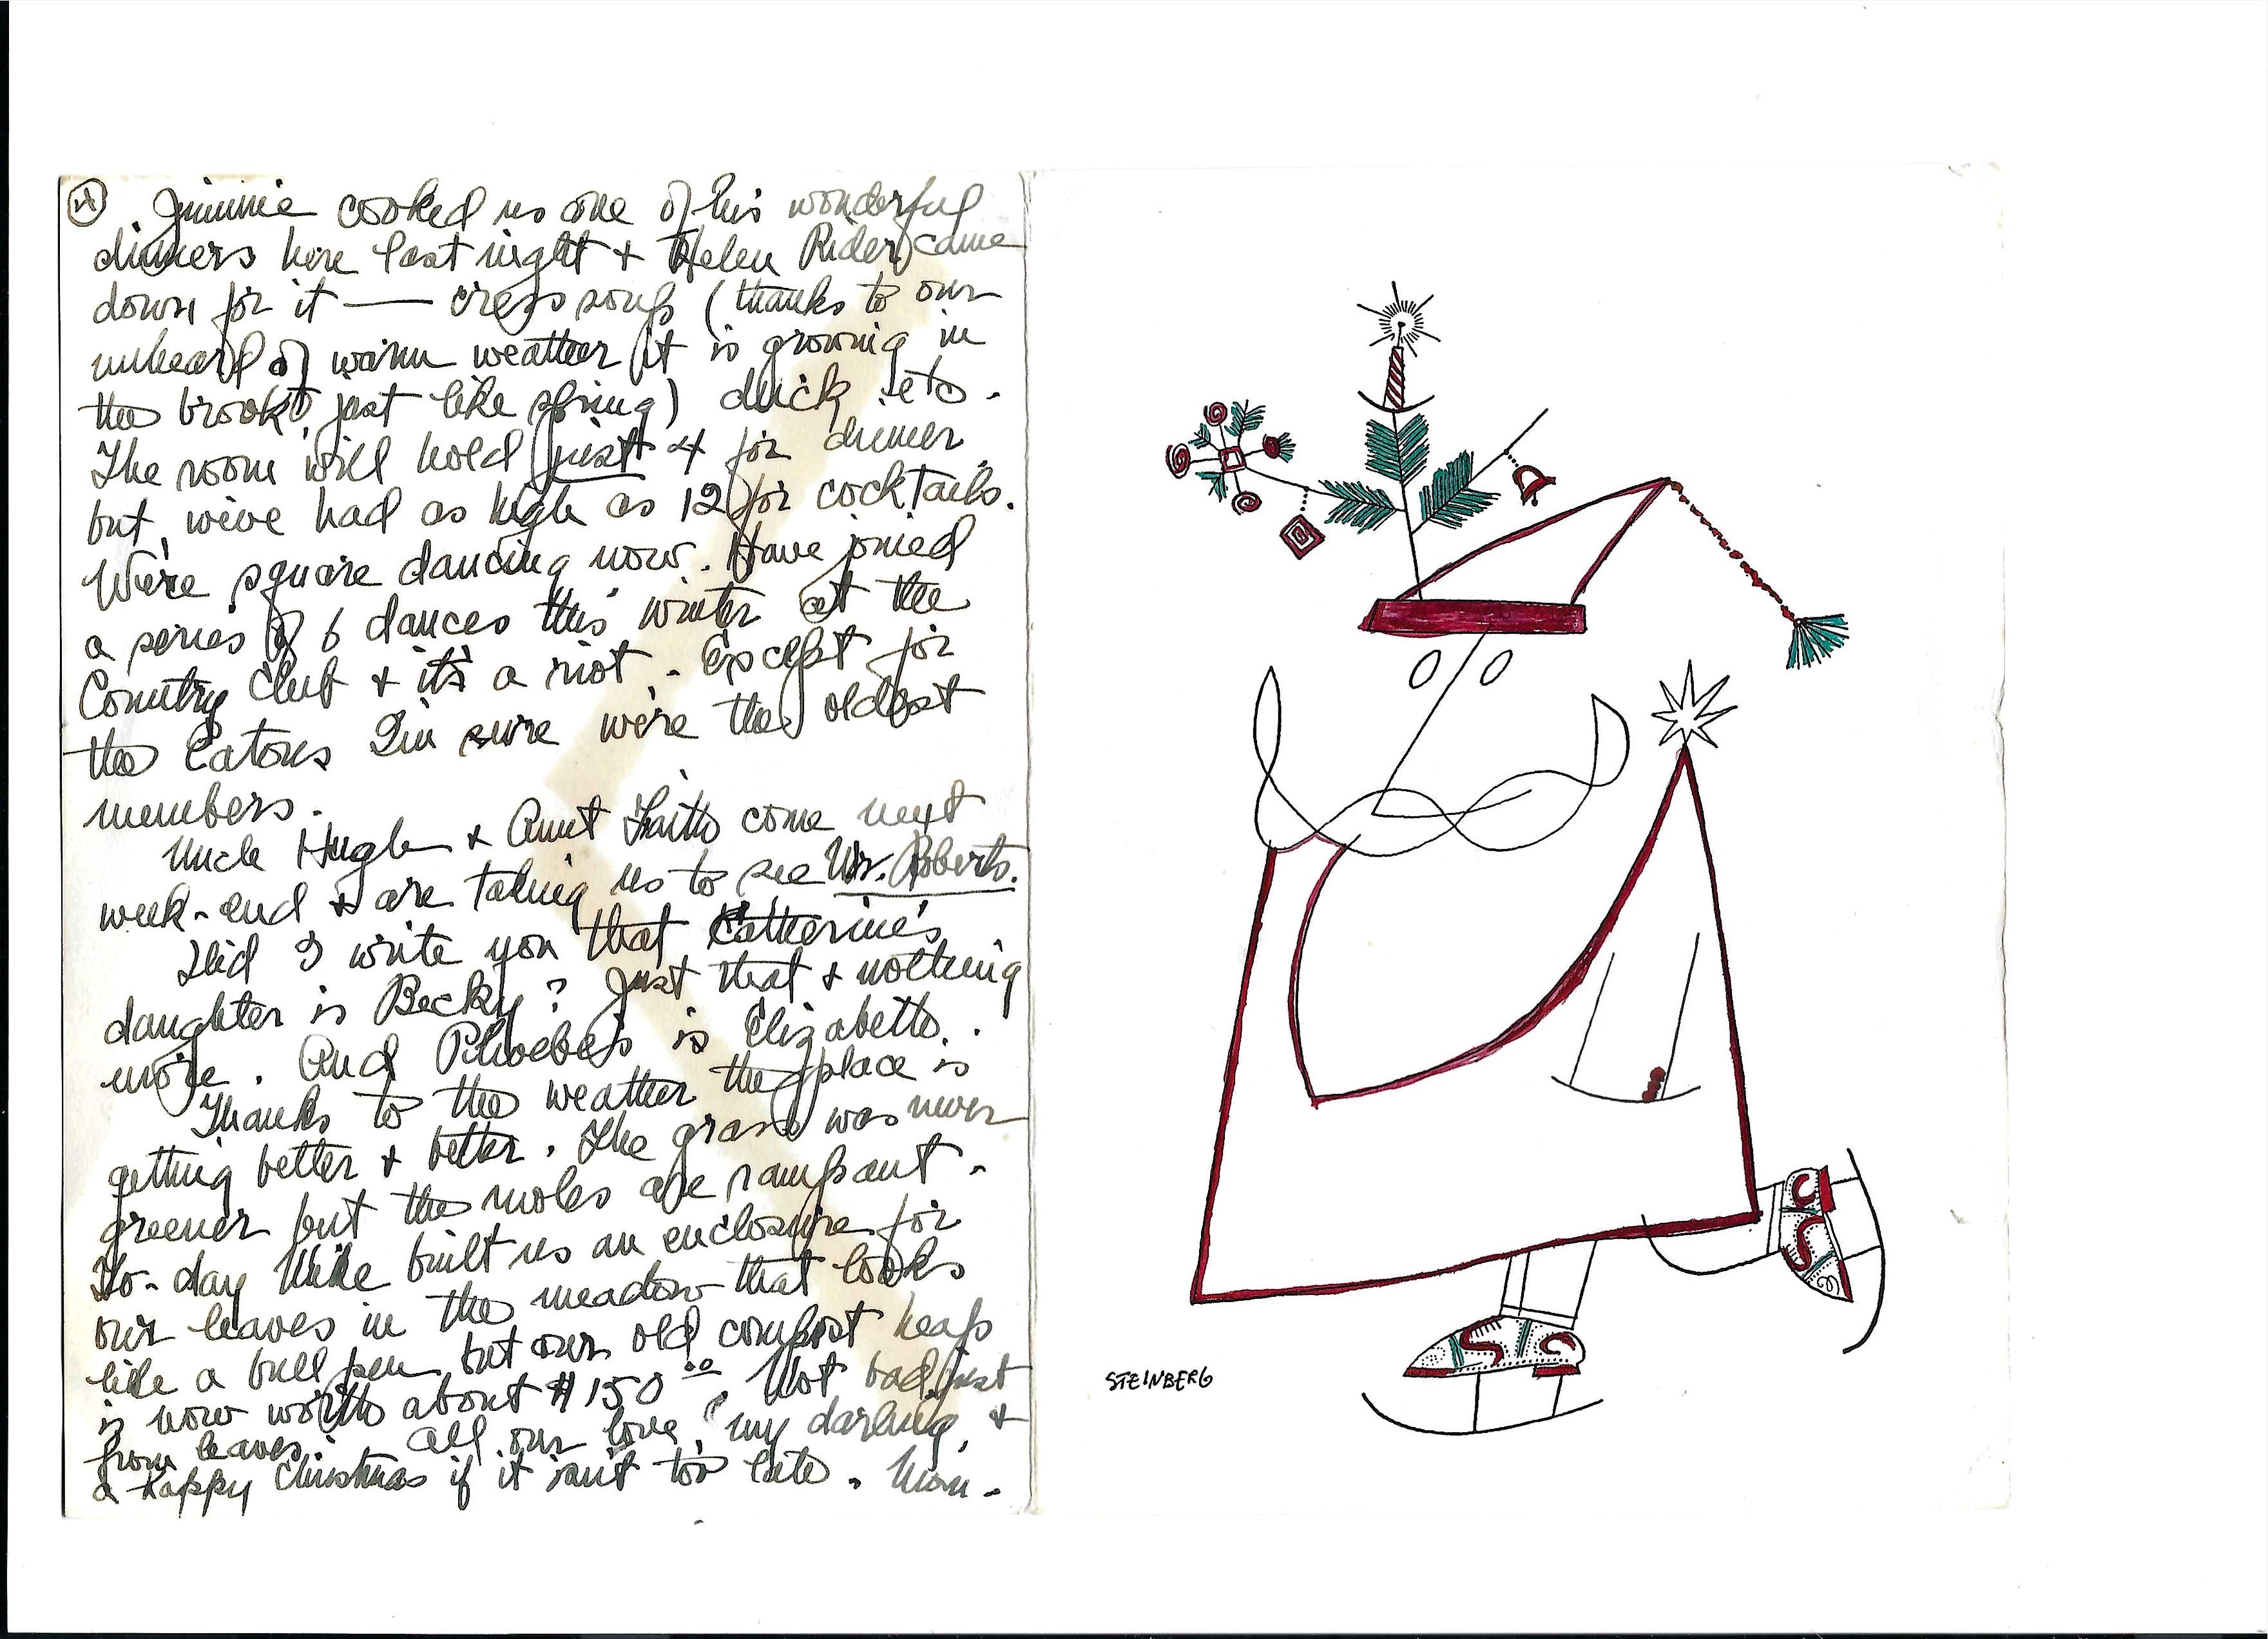 4
Jimmie cooked us one of his wonderful
dinners here last night + Helen Rider came
down for it — cress soup (thanks to our
unheard of warm weather it is growing in
the brook just like spring) duck etc.
The room will hold just 4 for dinner
but we've had as high as 12 for cocktails.
We're square dancing now. Have joined
a series of 6 dances this winter at the
Country Club + it's a riot. Except for
the Eatons I'm sure we're the oldest
members.
Uncle Hugh + Aunt Faith come next
week-end + are taking us to see Mr. Roberts.
Did I write you that Catherine's
daughter is Becky? Just that + nothing
more. And Phoebe's is Elizabeth.
Thanks to the weather the place is
getting better + better. The grass was never
greener but the moles are rampant.
To-day Mike built us an enclosure for
our leaves in the meadow that looks
like a bull pen but our old compost heap
is now worth about $150⁰⁰. Not bad just
from leaves. All our love, my darling, +
a Happy Christmas if it isn't too late. Mom.
STEINBERG